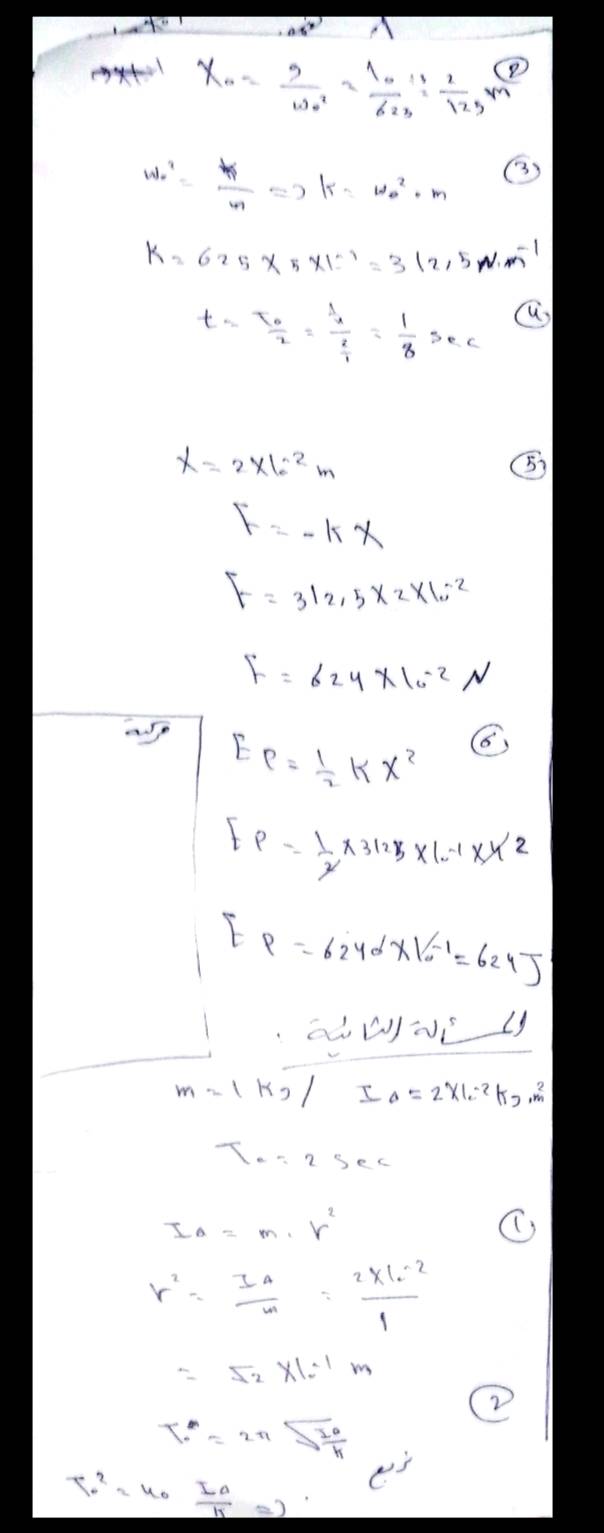 X₀ = g/ω₀² = 10/625 = 2/125 m (2)
ω₀² = k/m => k = ω₀² . m (3)
K = 625 × 5 × 10⁻¹ = 312,5 N.m⁻¹
t = T₀/2 = 1/8 sec (4)
X = 2×10⁻² m (5)
F = -kX
F = 312,5 × 2×10⁻²
F = 624 × 10⁻² N
مركبة
Ep = 1/2 k X² (6)
Ep = 1/2 × 3125 × 10⁻¹ × 4 2
Ep = 6240 × 10⁻¹ = 624 J
المسألة الثانية .
m = 1 Kg / I∆ = 2×10⁻² Kg.m²
T₀ = 2 sec
I∆ = m . r² (1)
r² = I∆/m = 2×10⁻²/1
= √2 × 10⁻¹ m
T₀ = 2π √(I∆/k) (2)
نربع
T₀² = 40 I∆/k =>